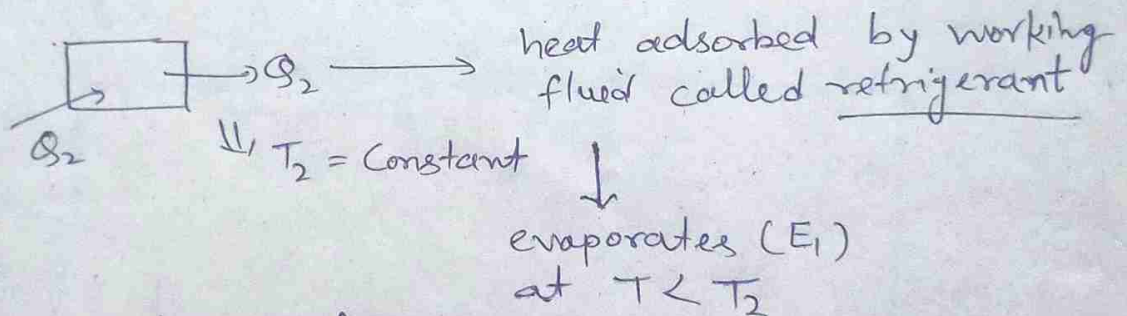 heat adsorbed by working
Q₂ → fluid called refrigerant
Q₂
⇓, T₂ = Constant
↓
evaporates (E₁)
at T < T₂